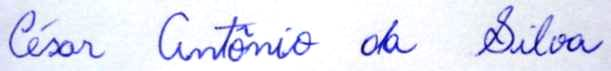 César Antônio da Silva